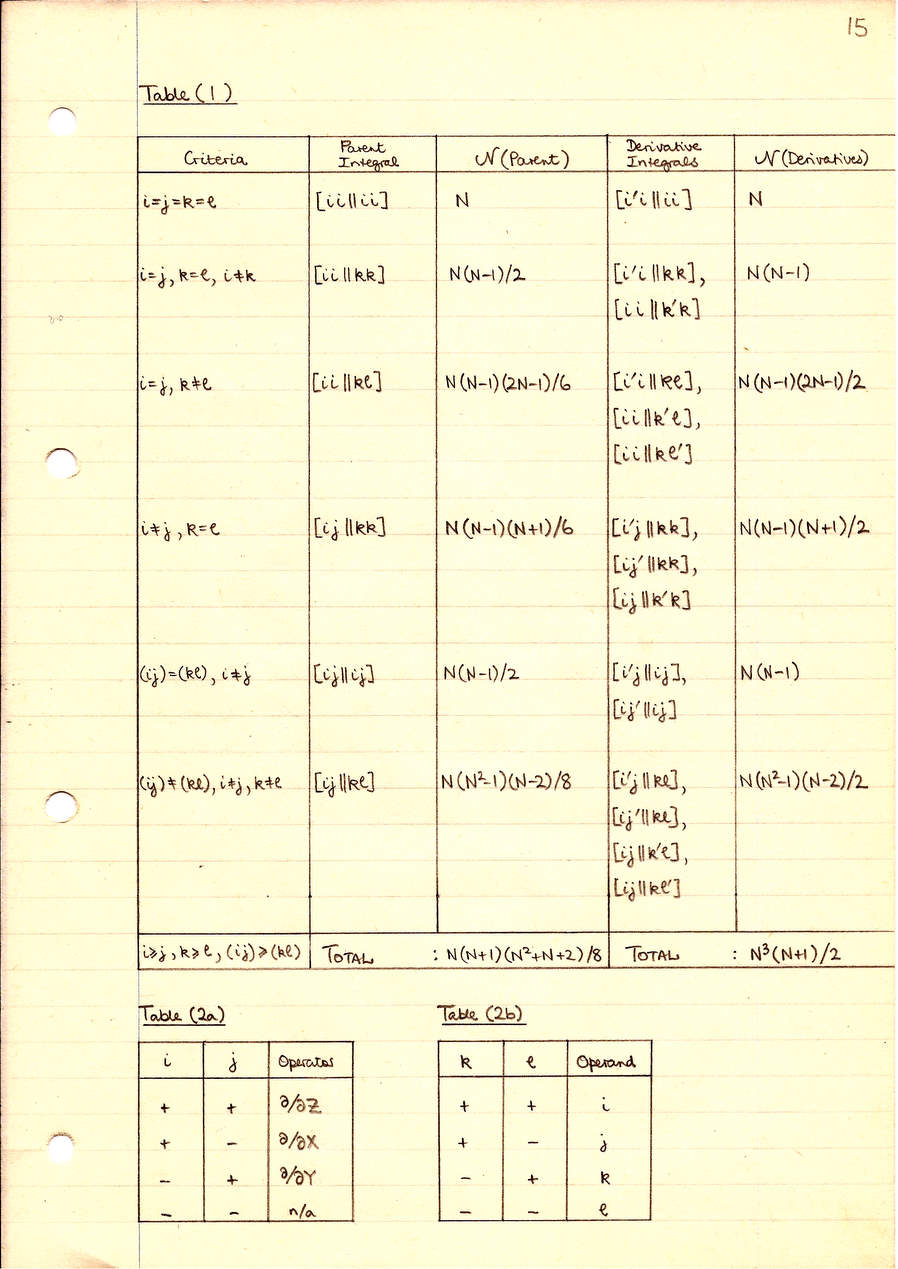 15
Table (1)
Criteria | Parent Integral | N(Parent) | Derivative Integrals | N(Derivatives)
i=j=k=ℓ | [ii||ii] | N | [i'i||ii] | N
i=j, k=ℓ, i≠k | [ii||kk] | N(N-1)/2 | [i'i||kk], | N(N-1)
[ii||k'k]
i=j, k≠ℓ | [ii||kℓ] | N(N-1)(2N-1)/6 | [i'i||kℓ], | N(N-1)(2N-1)/2
[ii||k'ℓ],
[ii||kℓ']
i≠j, k=ℓ | [ij||kk] | N(N-1)(N+1)/6 | [i'j||kk], | N(N-1)(N+1)/2
[ij'||kk],
[ij||k'k]
(ij)=(kℓ), i≠j | [ij||ij] | N(N-1)/2 | [i'j||ij], | N(N-1)
[ij'||ij]
(ij)≠(kℓ), i≠j, k≠ℓ | [ij||kℓ] | N(N²-1)(N-2)/8 | [i'j||kℓ], | N(N²-1)(N-2)/2
[ij'||kℓ],
[ij||k'ℓ],
[ij||kℓ']
i⩾j, k⩾ℓ, (ij)⩾(kℓ) | TOTAL : N(N+1)(N²+N+2)/8 | TOTAL : N³(N+1)/2
Table (2a)
i | j | Operator
+ | + | ∂/∂Z
+ | - | ∂/∂X
- | + | ∂/∂Y
- | - | n/a
Table (2b)
k | ℓ | Operand
+ | + | i
+ | - | j
- | + | k
- | - | ℓ